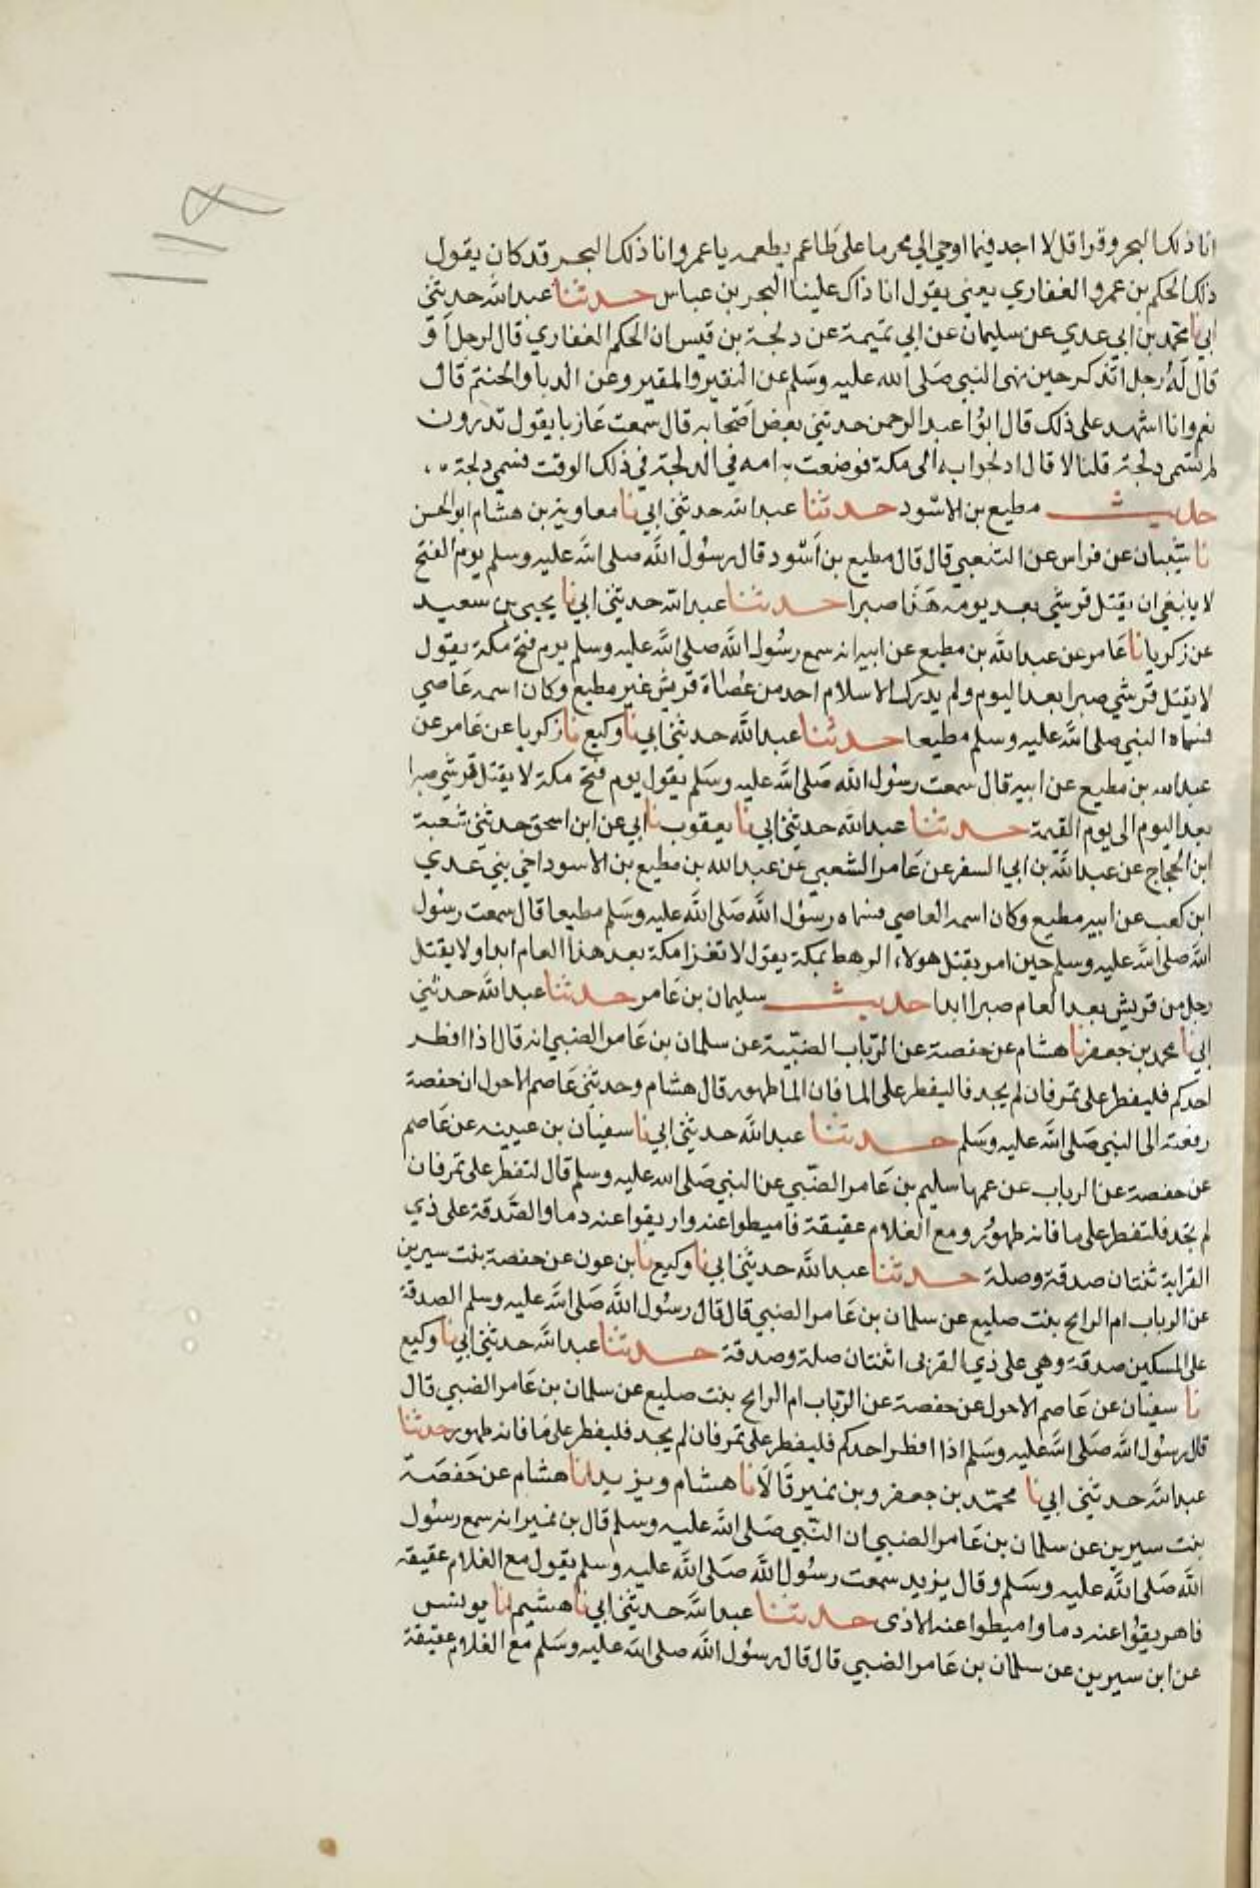 انا ذلك البحر وقرا قل لا اجد فيما اوحي الي محرما على طاعم يطعمه يا عمرو انا ذلك البحر قد كان يقول
ذلك الحكم بن عمرو الغفاري يعني يقول انا ذاك علينا البحر بن عباس حدثنا عبد الله حدثني
ابي نا محمد بن ابي عدي عن سليمان عن ابي تميمة عن دلجة بن قيس ان الحكم الغفاري قال لرجل او
قال له رجل اتذكر حين نهى النبي صلى الله عليه وسلم عن النقير والمقير وعن الدبا والحنتم قال
نعم وانا اشهد على ذلك قال ابو عبد الرحمن حدثني بعض اصحابه قال سمعت عازبا يقول تدرون
لم تسمى دلجة قلنا لا قال ادلجوا به الى مكة فوضعت به امه في الدلجة في ذلك الوقت فسمي دلجة
حديث مطيع بن الاسود حدثنا عبد الله حدثني ابي نا معاوية بن هشام ابو الحسن
نا شيبان عن فراس عن الشعبي قال قال مطيع بن اسود قال رسول الله صلى الله عليه وسلم يوم الفتح
لا ينبغي ان يقتل قرشي بعد يومه هذا صبرا حدثنا عبد الله حدثني ابي نا يحيى بن سعيد
عن زكريا نا عامر عن عبد الله بن مطيع عن ابيه انه سمع رسول الله صلى الله عليه وسلم يوم فتح مكة يقول
لا يقتل قرشي صبرا بعد اليوم ولم يدرك الاسلام احد من عصاة قريش غير مطيع وكان اسمه عاصي
فسماه النبي صلى الله عليه وسلم مطيعا حدثنا عبد الله حدثني ابي نا وكيع نا زكريا عن عامر عن
عبد الله بن مطيع عن ابيه قال سمعت رسول الله صلى الله عليه وسلم يقول يوم فتح مكة لا يقتل قرشي صبرا
بعد اليوم الى يوم القيمة حدثنا عبد الله حدثني ابي نا يعقوب نا ابي عن ابن اسحق حدثني شعبة
ابن الحجاج عن عبد الله بن ابي السفر عن عامر الشعبي عن عبد الله بن مطيع بن الاسود اخي بني عدي
ابن كعب عن ابيه مطيع وكان اسمه العاصي فسماه رسول الله صلى الله عليه وسلم مطيعا قال سمعت رسول
الله صلى الله عليه وسلم حين امر بقتل هولاء الرهط بمكة يقول لا تغزا مكة بعد هذا العام ابدا ولا يقتل
رجل من قريش بعد العام صبرا ابدا حديث سليمان بن عامر حدثنا عبد الله حدثني
ابي نا محمد بن جعفر نا هشام عن حفصة عن الرباب الضبية عن سلمان بن عامر الضبي انه قال اذا افطر
احدكم فليفطر على تمر فان لم يجد فاليفطر على الما فان الما طهور قال هشام وحدثني عاصم الاحول ان حفصة
رفعته الى النبي صلى الله عليه وسلم حدثنا عبد الله حدثني ابي نا سفيان بن عيينه عن عاصم
عن حفصة عن الرباب عن عمها سليم بن عامر الضبي عن النبي صلى الله عليه وسلم قال لتفطر على تمر فان
لم تجد فلتفطر على ما فانه طهور ومع الغلام عقيقة فاميطوا عنه واريقوا عنه دما والصدقة على ذي
القرابة ثنتان صدقة وصلة حدثنا عبد الله حدثني ابي نا وكيع نا بن عون عن حفصة بنت سيرين
عن الرباب ام الرايح بنت صليع عن سلمان بن عامر الضبي قال قال رسول الله صلى الله عليه وسلم الصدقة
على المسكين صدقة وهي على ذي القربى اثنتان صلة وصدقة حدثنا عبد الله حدثني ابي نا وكيع
نا سفيان عن عاصم الاحول عن حفصة عن الرباب ام الرايح بنت صليع عن سلمان بن عامر الضبي قال
قال رسول الله صلى الله عليه وسلم اذا افطر احدكم فليفطر على تمر فان لم يجد فليفطر على ما فانه طهور حدثنا
عبد الله حدثني ابي نا محمد بن جعفر وبن نمير قالا نا هشام ويزيد انا هشام عن حفصة
بنت سيرين عن سلمان بن عامر الضبي ان النبي صلى الله عليه وسلم قال بن نمير انه سمع رسول
الله صلى الله عليه وسلم وقال يزيد سمعت رسول الله صلى الله عليه وسلم يقول مع الغلام عقيقه
فاهريقوا عنه دما واميطوا عنه الاذى حدثنا عبد الله حدثني ابي نا هشيم انا يونس
عن ابن سيرين عن سلمان بن عامر الضبي قال قال رسول الله صلى الله عليه وسلم مع الغلام عقيقة